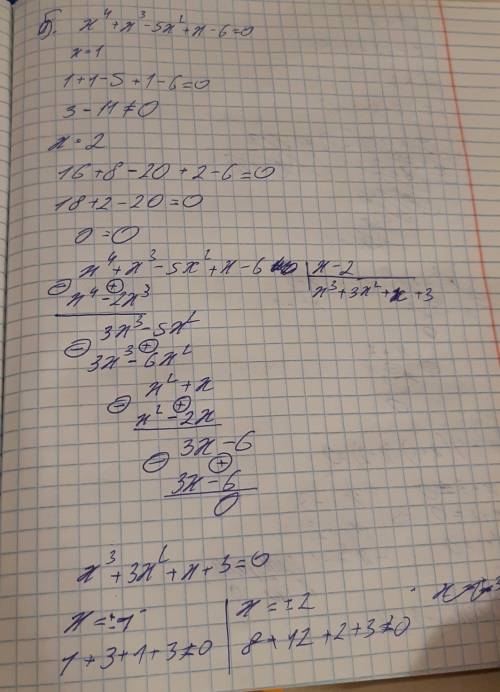 б). x⁴+x³-5x²+x-6=0
x=1
1+1-5+1-6=0
3-11≠0
x=2
16+8-20+2-6=0
18+2-20=0
0=0
x⁴+x³-5x²+x-6 | x-2
x⁴-2x³ | x³+3x²+x+3
3x³-5x²
3x³-6x²
x²+x
x²-2x
3x-6
3x-6
0
x³+3x²+x+3=0
x=±1
1+3+1+3≠0
x=±2
8+12+2+3≠0